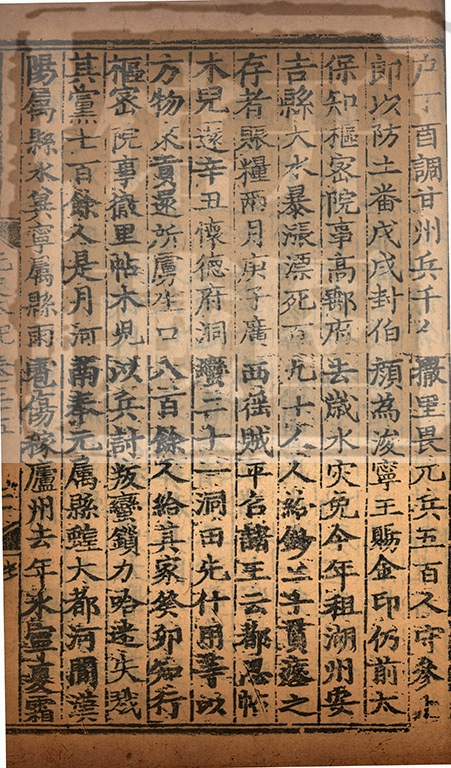 户丁酉調甘州兵千人撒里畏兀兵五百人守參卜
郎以防土番戊戌封伯顔為浚寧王賜金印仍前太
保知樞密院事高郵府去歲水灾免今年租湖州安
吉縣大水暴漲漂死百九十人人給鈔二十貫瘞之
存者賑糧兩月庚子廣西徭賊平召諸王云都思帖
木兒還辛丑懷德府洞蠻二十一洞田先什用等以
方物來貢還所虜生口八百餘人給其家癸卯知行
樞密院事徹里帖木兒以兵討叛蠻鎖力哈迷失戮
其黨七百餘人是月河南奉元屬縣蝗大都河間漢
陽屬縣水兾寧屬縣雨雹傷稼廬州去年水寧夏霜